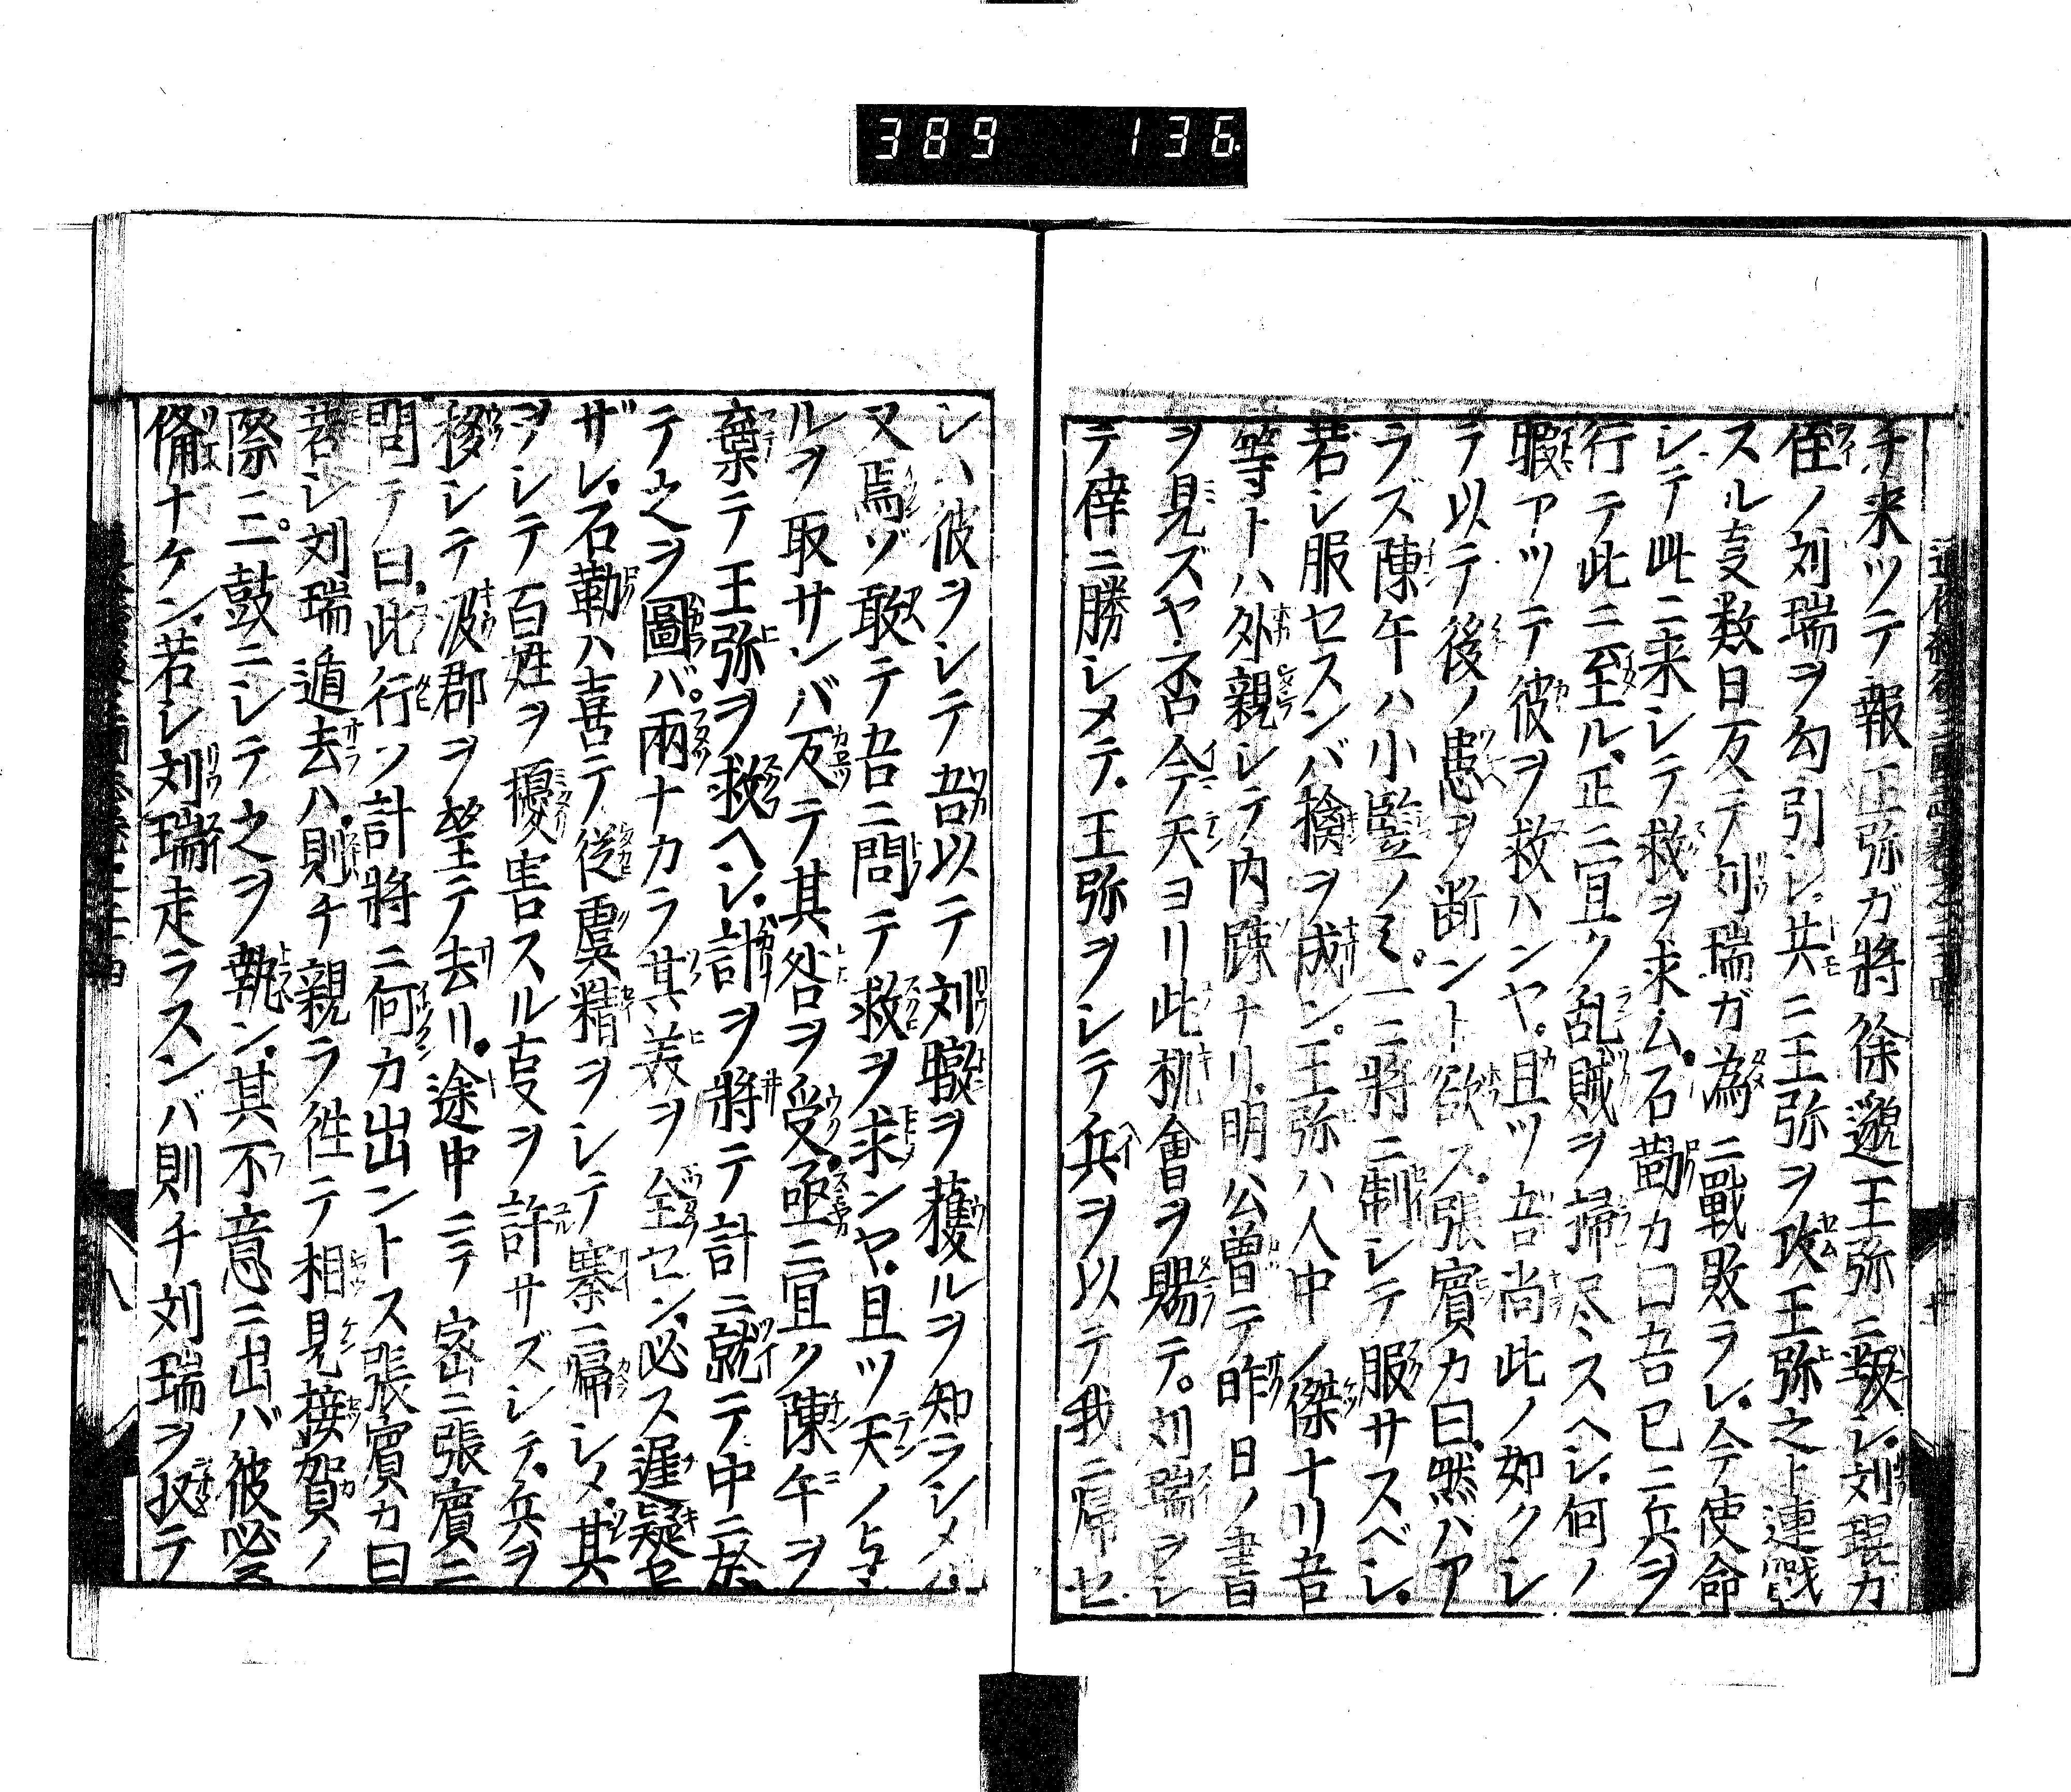 389 136
チ来ツテ報。王弥ガ將徐邈王弥ニ叛シ、刘琨ガ
侄ノ刘瑞ヲ勾引シ、共ニ王弥ヲ攻ム王弥之ト連戦
スル𫝆数日反テ刘瑞ガ為ニ戰敗ラレ、今使命
シテ此ニ来シテ救ヲ求ム。石勒カ曰吾已ニ兵ヲ
行テ此ニ至ル、正ニ宜ク乱賊ヲ掃尽スヘシ、何ノ
暇アツテ彼ヲ救ハンヤ。且ツ吾尚此ノ如クシ
テ以テ後ノ患ヲ断ント欲ス。張賓カ曰、然ハア
ラズ陳午ハ小豎ノミ。一二將ニ制シテ服サスベシ。
若シ服セスンバ擒ヲ成ン。王弥ハ人中ノ傑ナリ吾
等トハ外親シテ内踈ナリ、明公曽テ昨日ノ書
ヲ見ズヤ否今天ヨリ此机會ヲ賜テ。刘瑞ヲシ
テ倖ニ勝シメテ。王弥ヲシテ兵ヲ以テ我ニ帰セ
シハ彼ヲシテ吾以テ刘職ヲ獲ルヲ知ランメバ
又焉ゾ敢テ吾ニ問テ救ヲ求ンヤ、且ツ天ノ与
ルヲ取サンバ反テ其咎ヲ受。亟ニ宜ク陳午ヲ
棄テ王弥ヲ救ヘシ、計ヲ將テ計ニ就テ中ニ於
テ之ヲ圖バ。兩ナカラ其美ヲ全セン、必ス遅疑セ
ザレ、石勒ハ喜テ従虞精ヲシテ寨ニ帰シメ、其
ヲシテ百姓ヲ擾害スル𫝆ヲ許サズシテ、兵ヲ
移シテ汲郡ヲ望テ去リ。途中ニテ密ニ張賓ニ
問テ曰、此行ソ計將ニ何カ出ントス張賓カ曰
若シ刘瑞遁去ハ、則チ親ラ徃テ相見接賀ノ
際ニ。一鼓ニシテ之ヲ執ン、其不意ニ出バ彼必ス
備ナケン、若シ刘瑞走ラスンバ則チ刘瑞ヲ収テ